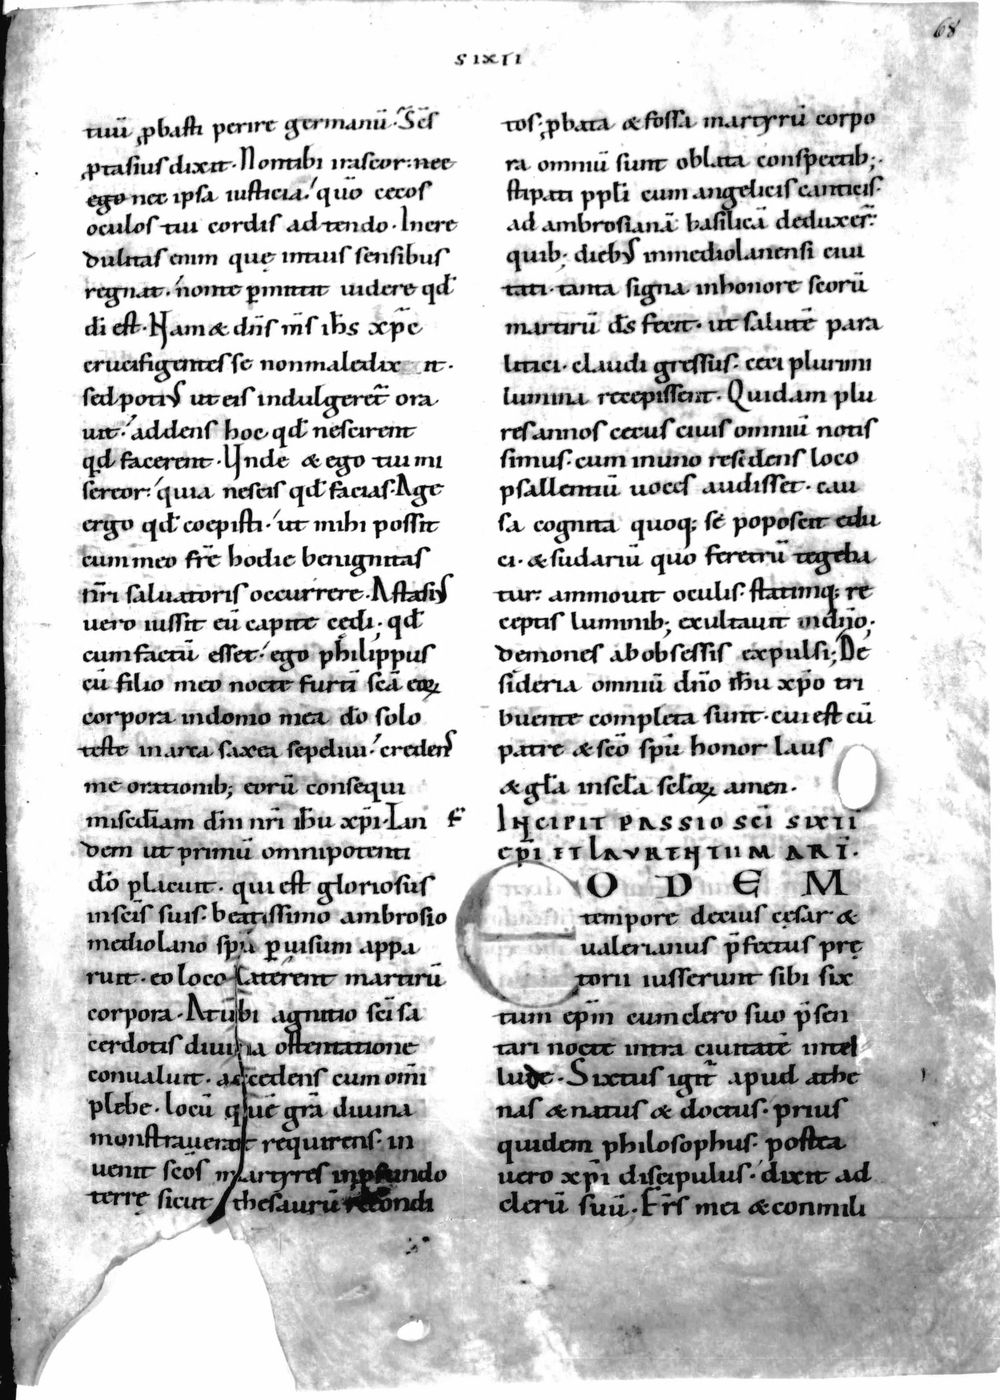 68
SIXTI
tuū ꝓbasti perire germanū. Scs̄
ꝓtasius dixit. Non tibi irascor. nec
ego nec ipsa iusticia. quō cecos
oculos tui cordis adtendo. Incre
dulitas enim quę intius sensibus
regnat. non te ꝑmittit uidere qd̄
di est. Nam & dn̄s m̄s ih̄s xp̄c
crucifigentes se non maledix it.
sed potiꝰ ut eis indulgeret᷑ ora
uit. addens hoc qd̄ nescirent
qd̄ facerent. Unde & ego tui mi
sereor. quia nescis qd̄ facias. Age
ergo qd̄ coepisti. ut mihi possit
cum meo fr̄e hodie benignitas
nr̄i saluatoris occurrere. Astasiꝰ
uero iussit eū capite cędi; qd̄
cum factū esset. ego philippus
cū filio meo nocte furtī scā eoꝝ
corpora in domo mea dō solo
teste in arca saxea sepeliui. credenꝰ
me orationib; eorū consequi
misc̄diam dn̄i nr̄i ih̄u xp̄i. Tan
dem ut primū omnipotenti
dō placuit. qui est gloriosus
in scīs suis. beatissimo ambrosio
mediolano spū ꝑ uisum appa
ruit. eo loco laterent martirū
corpora. At ūbi agnitio scī sa
cerdotis diuina ostentatione
conualuit. accedens cum om̄i
plebe. locū quē grā diuina
monstrauerat requirens. in
uenit scōs martyres in ꝓfundo
terrę sicut thesaurū recondi
tos. ꝓbata & fossa martyrū corpo
ra omniū sunt oblata conspectib;.
stipati ppli cum angelicis canticis.
ad ambrosianā basilicā deduxer̄.
quib; diebꝰ in mediolanensi ciui
tati. tanta signa in honore scorū
martirū ds̄ fecit. ut salutē para
litici. claudi gressus. ceci plurimi
lumina recepissent. Quidam plu
res annos cecus ciuis omniū notis
simus. cum in uno residens loco
psallentiū uoces audisset. cau
sa cognita quoq; sē poposcit edu
ci. & sudariū quo feretrū tegeba
tur. ammouit oculis. statimq; re
ceptis luminib; exultauit in dn̄o;
demones ab obsessis expulsi; De
sideria omniū dn̄o ih̄u xp̄o tri
buente completa sunt. cui est cū
patre & scō spū honor laus
& gl̄a in scl̄a scl̄oꝝ amen.
INCIPIT PASSIO SCI SIXTI
EPI ET LAURENTII MARĪ.
EODEM
tempore decius cęsar &
ualerianus p̄fectus prę
torii iusserunt sibi six
tum ep̄m cum clero suo p̄sen
tari nocte intra ciuitatē intel
lude. Sixtus igit᷑ apud athe
nas & natus & doctus. prius
quidem philosophus. postea
uero xp̄i discipulus. dixit ad
clerū suū. Fr̄s mei & conmili